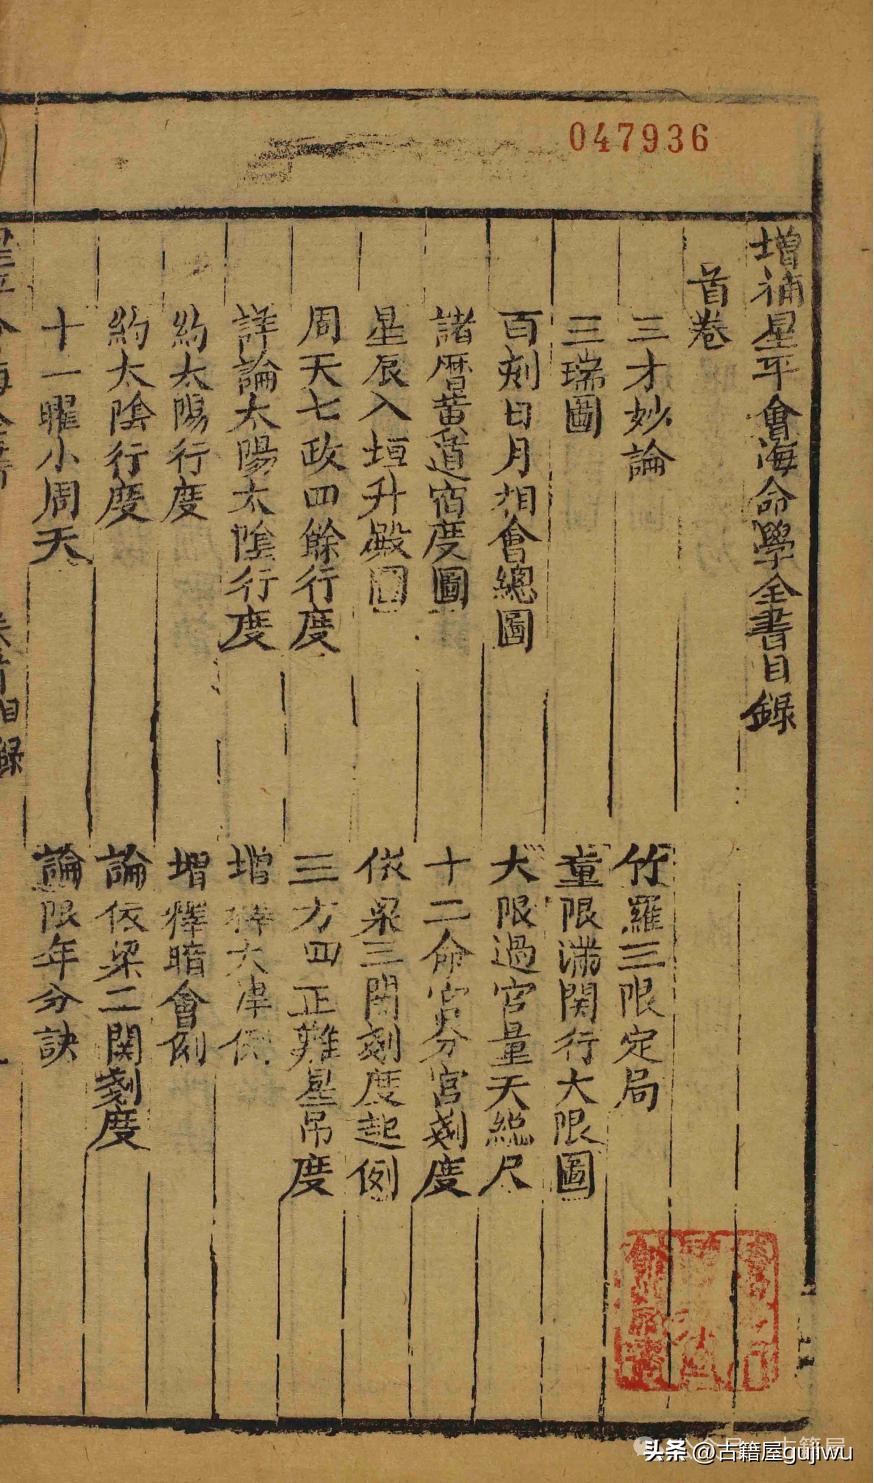 047936
增補星平會海命學全書目錄
首卷
三才妙論
竹羅三限定局
三瑞圖
童限滿関行大限圖
百刻日月相會總圖
大限過宮量天總尺
諸曆黃道宿度圖
十二命宮分宮刻度
星辰入垣升殿圖
依梁三関刻度起例
周天七政四餘行度
三方四正難星吊度
詳論太陽太陰行度
增釋天津例
約太陽行度
增釋暗會例
約太陰行度
論依梁二関刻度
十一曜小周天
論限年分訣
頭条 @古籍屋gujiwu